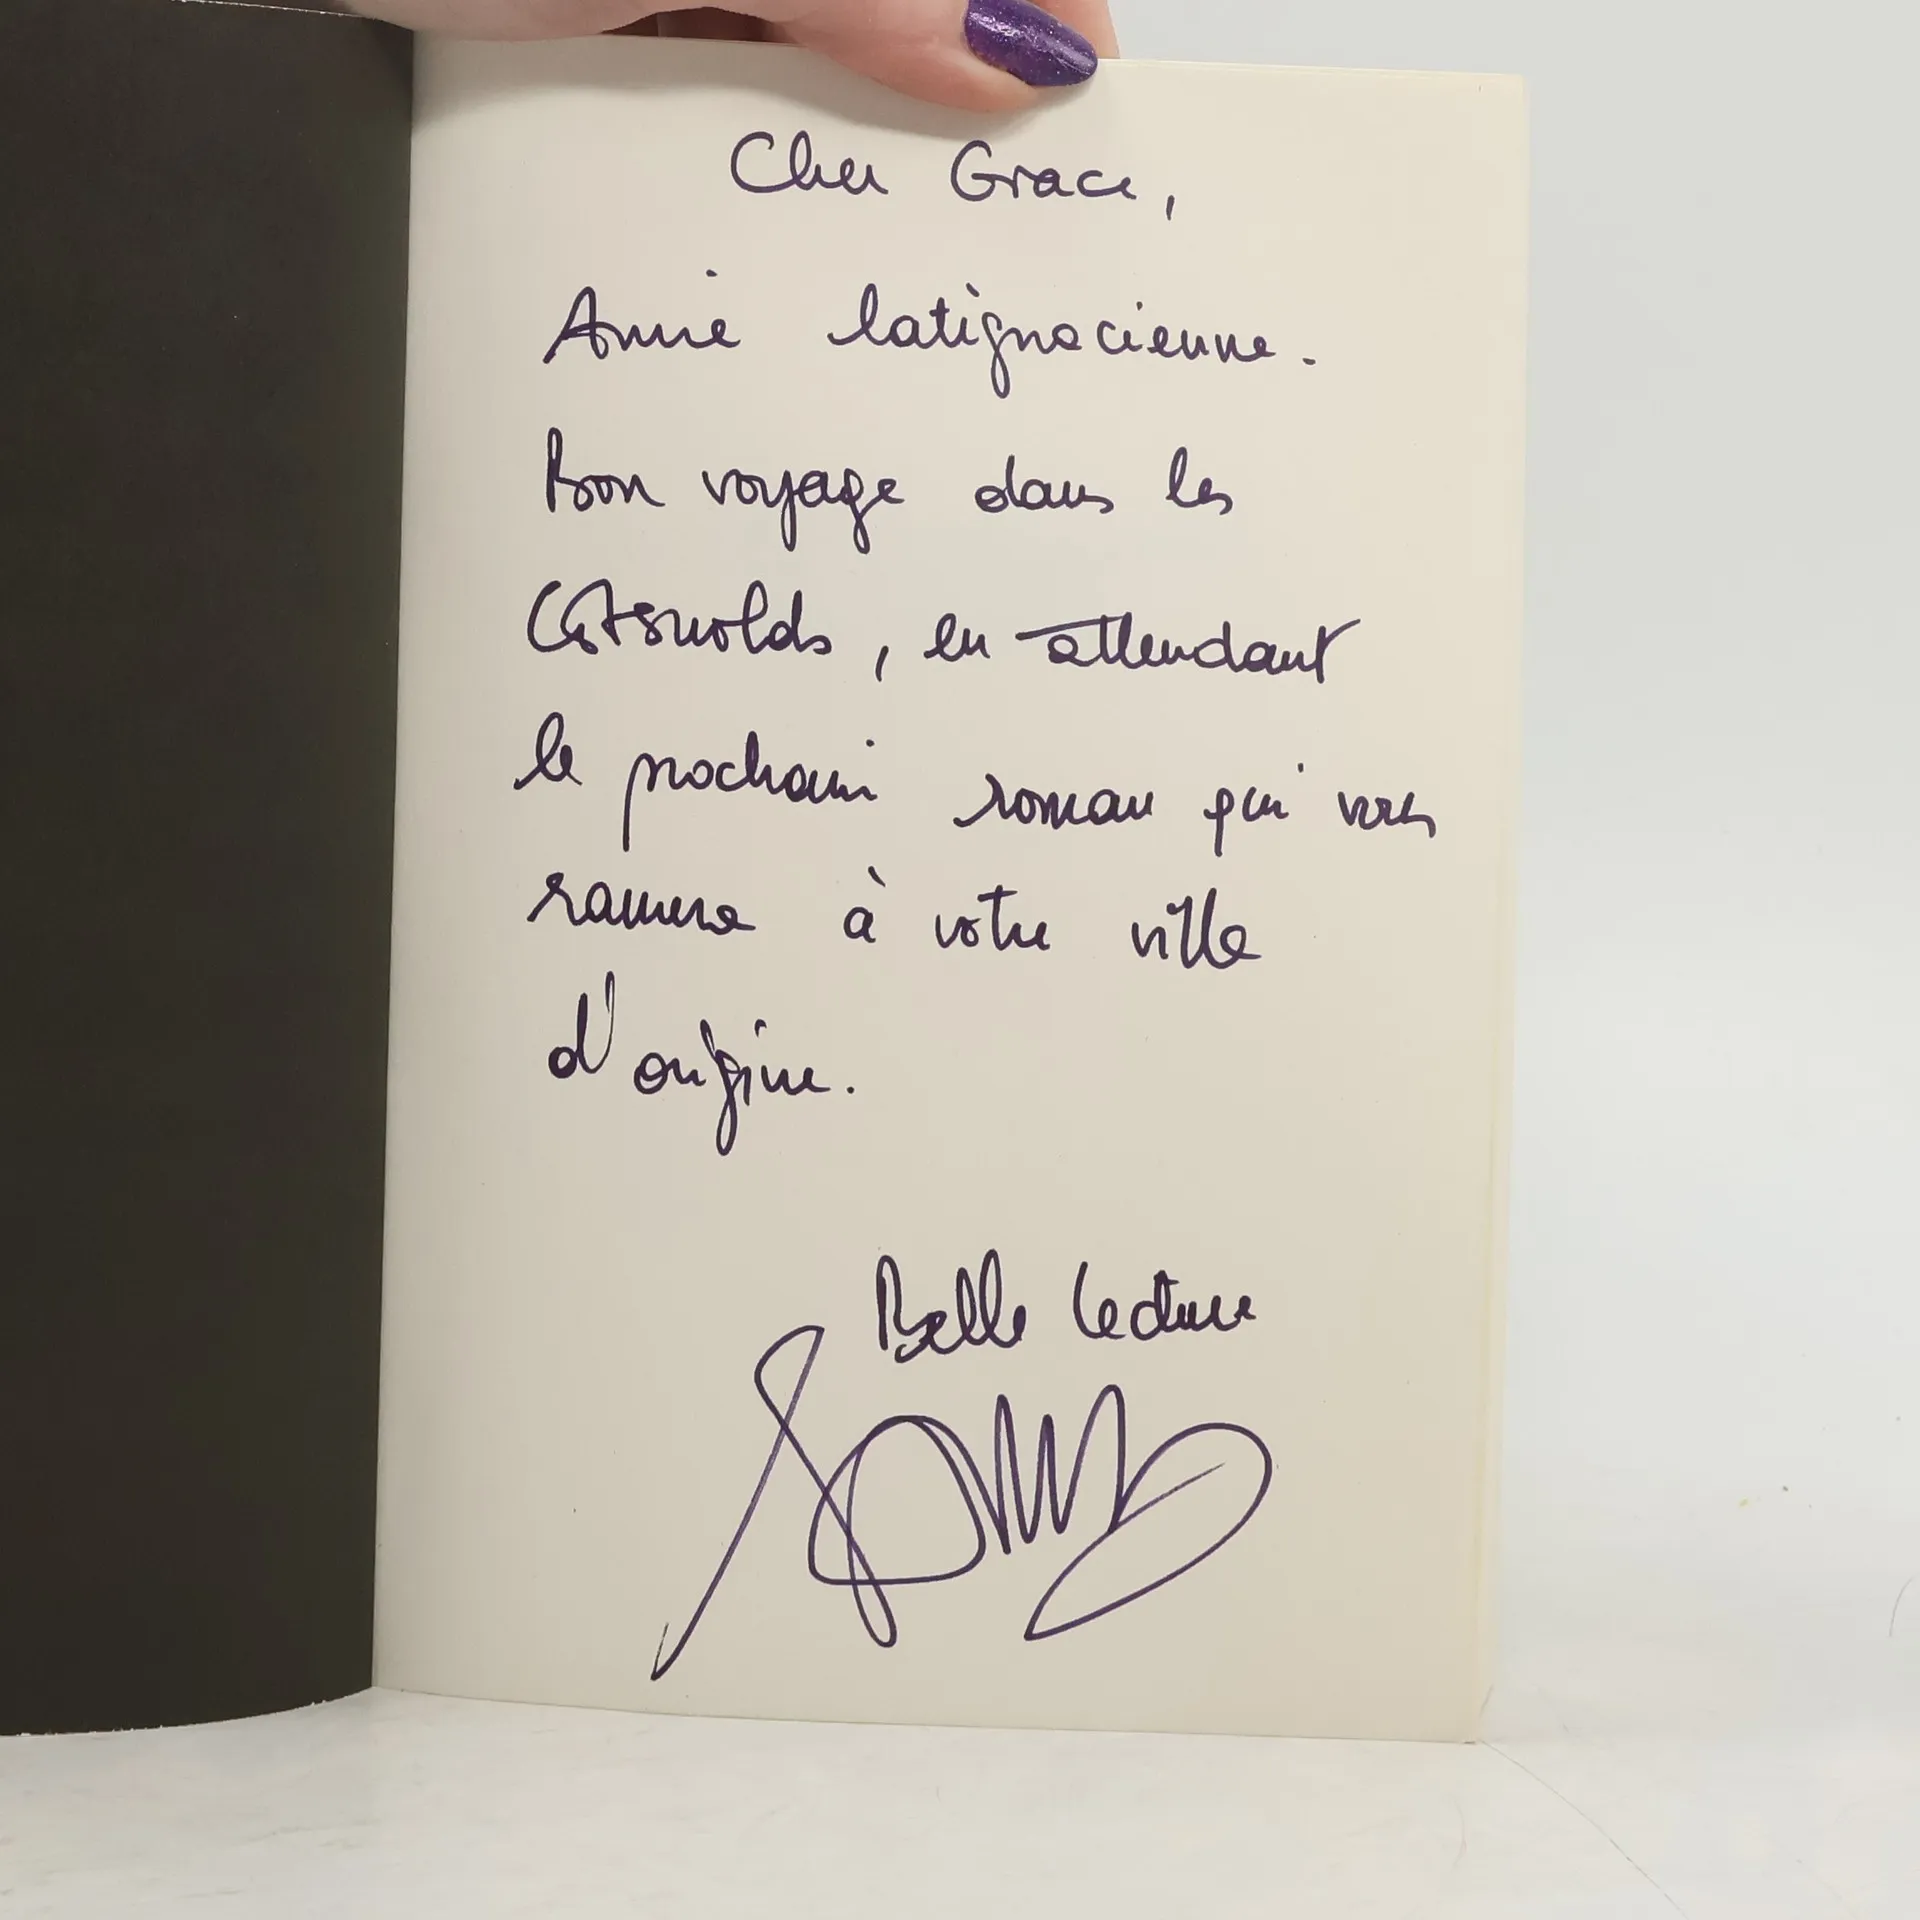 Cher Grace,
Amie latignacienne.
Bon voyage dans les
Cotswolds, en attendant
le prochain roman qui vous
ramène à votre ville
d'origine.
Belle lecture